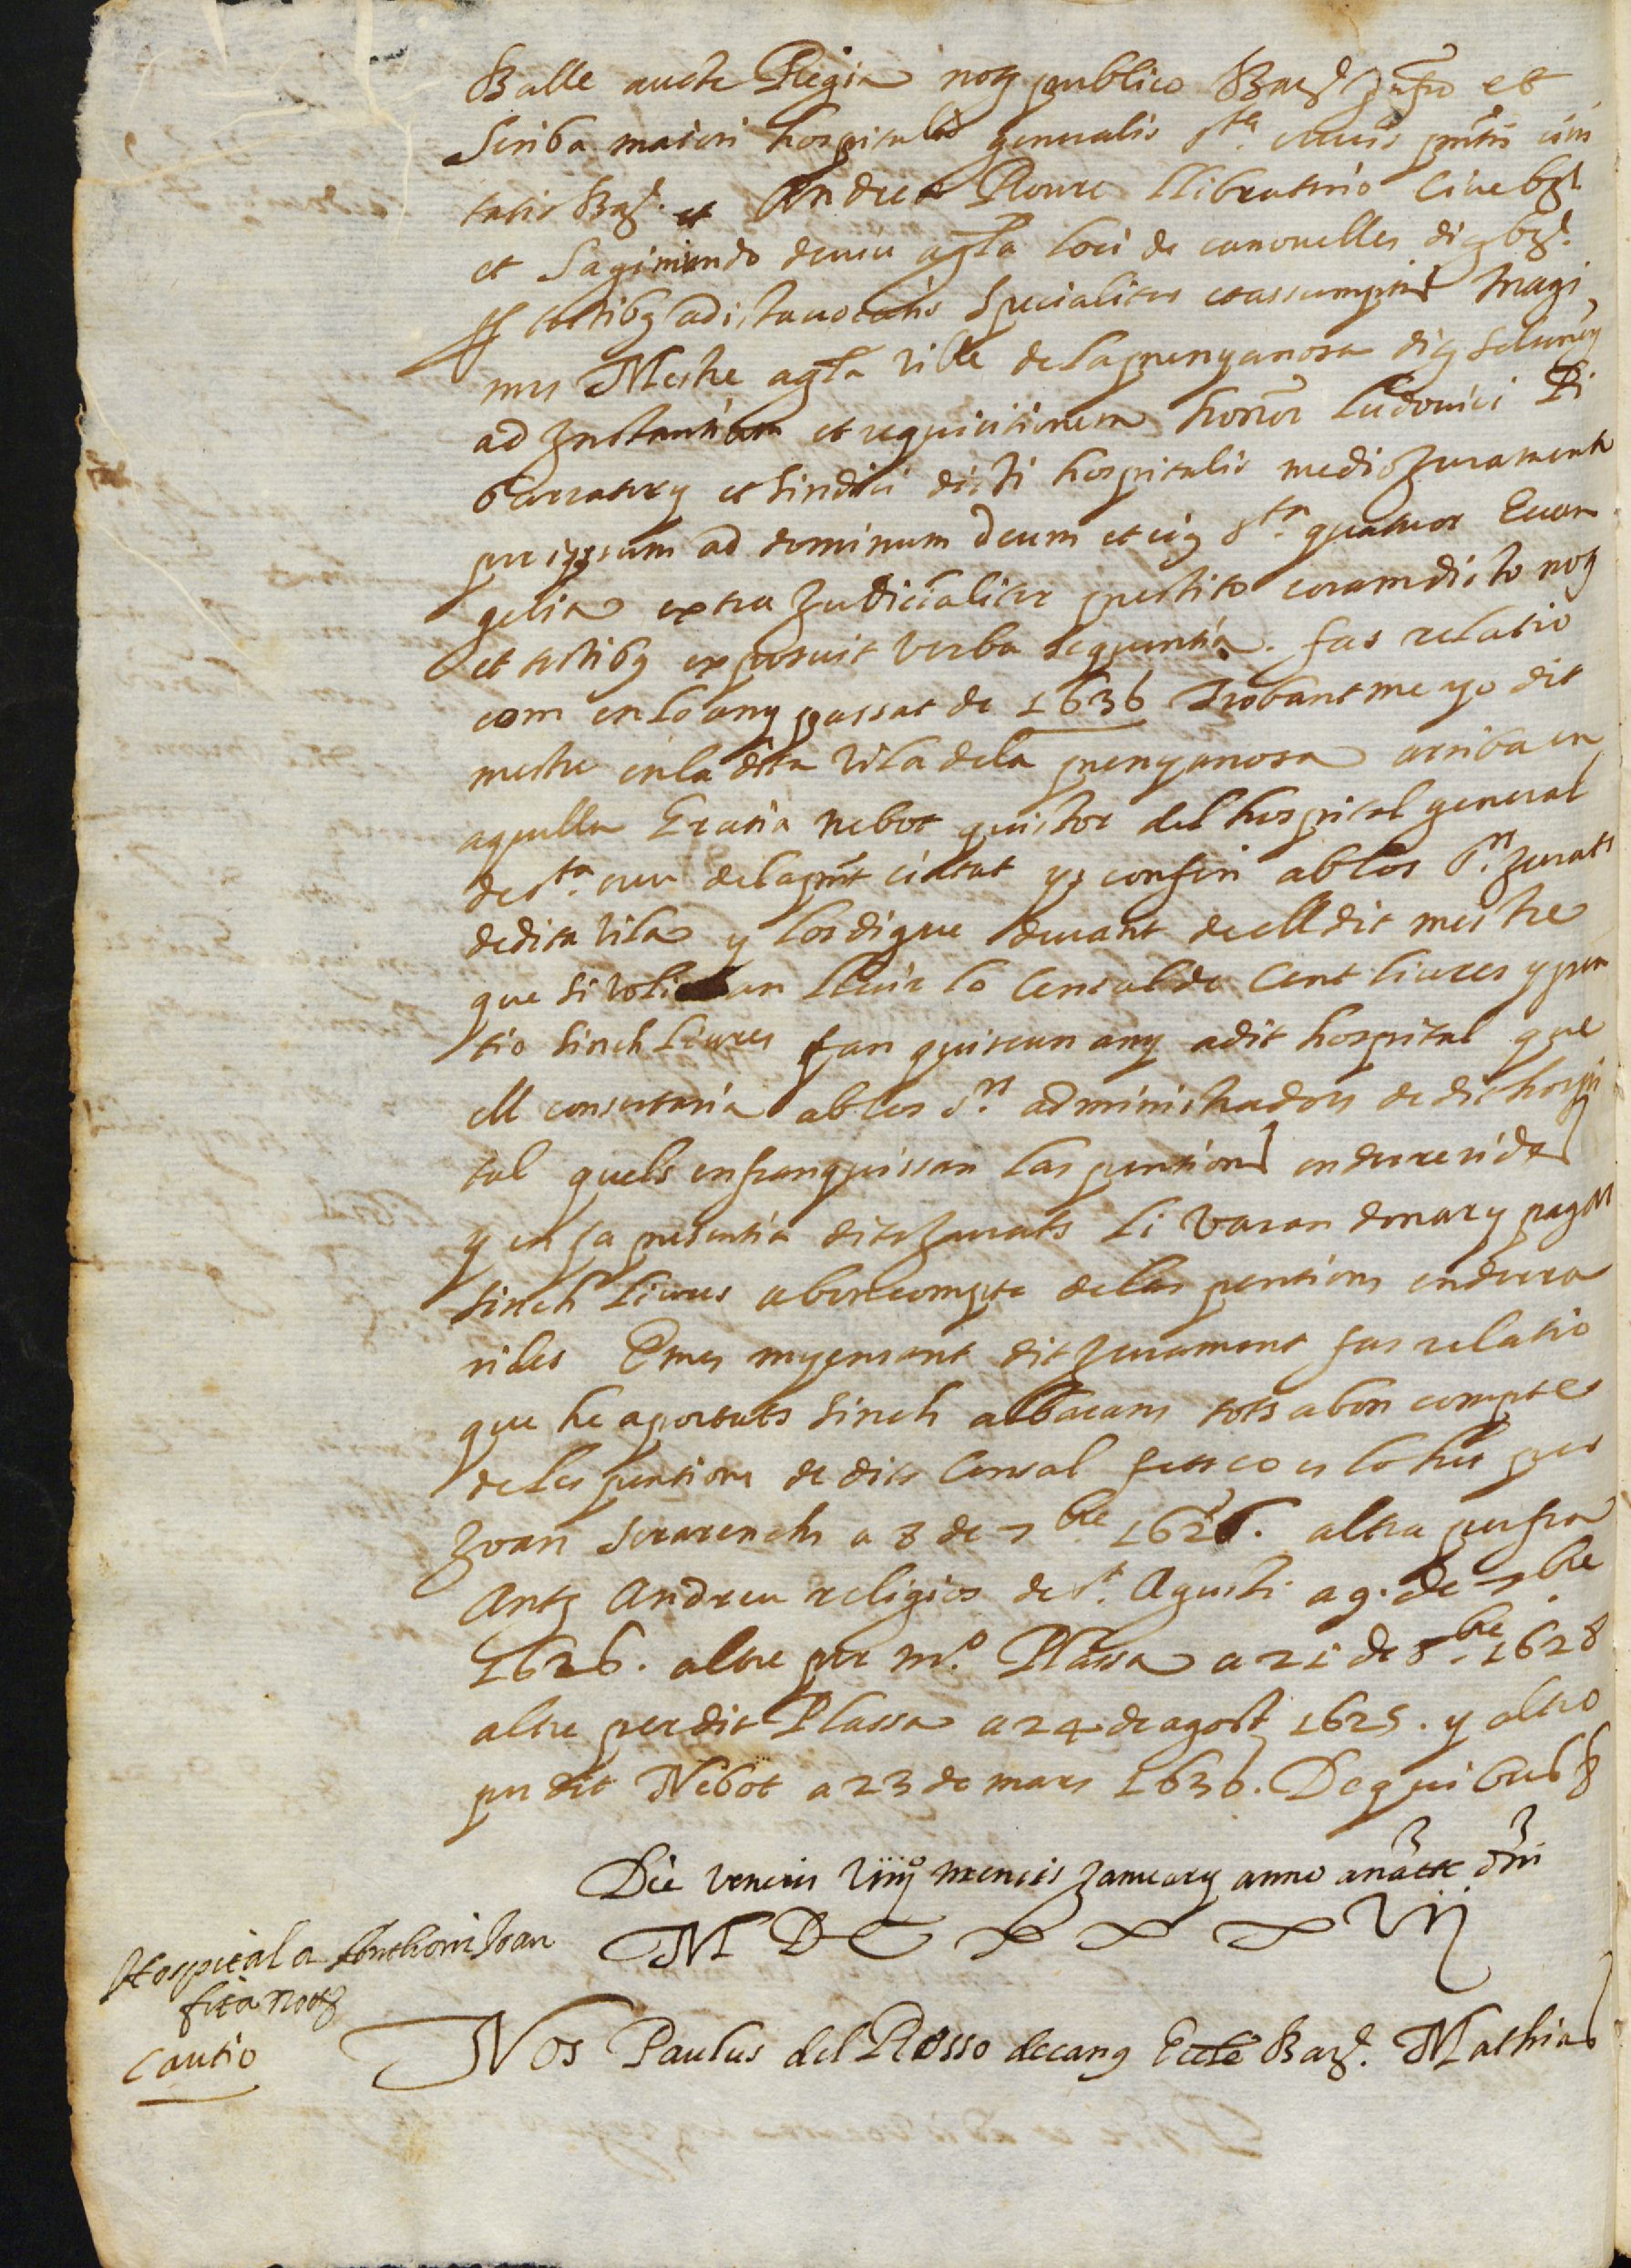 Balle aucte Regia noty publico Barȝ infro et
Scriba maiori hospitalis generalis Sta. crucis pntis civi
tatis Barȝ. et Andrea Roure llibraterio Cive bȝ.
et Sagimundo deueu agla loci de canouelles diȝ bȝ.
testibȝ adista vocatis specialiter et assumptis Magi
nus Mestre agla ville de la prenyanosa diȝ
ad Instantiam et requisitionem honor Ludovici Pi
barratery et Sindici dicti hospitalis medio Juramento
per ipsum ad dominum deum et eiȝ Sta. quatuor Euan
gelia extra Judicialiter prestito coram dicto noty
et testibȝ exposuit verba sequentia. fas relatio
com en lo any passat de 1636 Trobantme yo dit
mestre en la dita vila dela prenyanosa arriba en
aquella Gratia Nebot quistor del hospital general
de Sta. creu dela pnt ciutat y conferi ab los Srs. Jurats
de dita vila y los digue devant de ell dit mestre
que si volian lluir lo Censal de Cent liures y pen
tio sinch liures fan quiscun any a dit hospital que
ell consertaria ab los Srs. administradors de dit hospi
tal quels enfranquissan las pentions endarreridas
y en sa presentia dits Jurats li varan donar y pagar
sinch liures a bon compte de las pentions endarre
rides Emes mijensant dit Jurament fas relatio
que he aportats sinch albarans tots a bon compte
de les pentions de dits Censal fets ço es lo hu per
Juan Serarench a 8 de 7bre. 1626. altra per fra
Antȝ Andreu religios de St. Agusti a 9. de 7bre
1626. altre per mo. Plassa a 21 de 8bre. 1628
altre per dit Plassa a 24 de agost 1625. y altro
per dit Nebot a 23 de mars 1636. De quibus ȝ
Die veneris viiij mencis January anno a natte dni
M D C x x x vij
Hospital a Anthoni Joan
fita noty
Cautio
Nos Paulus del Rosso decanȝ Eccle Barȝ. Mathias